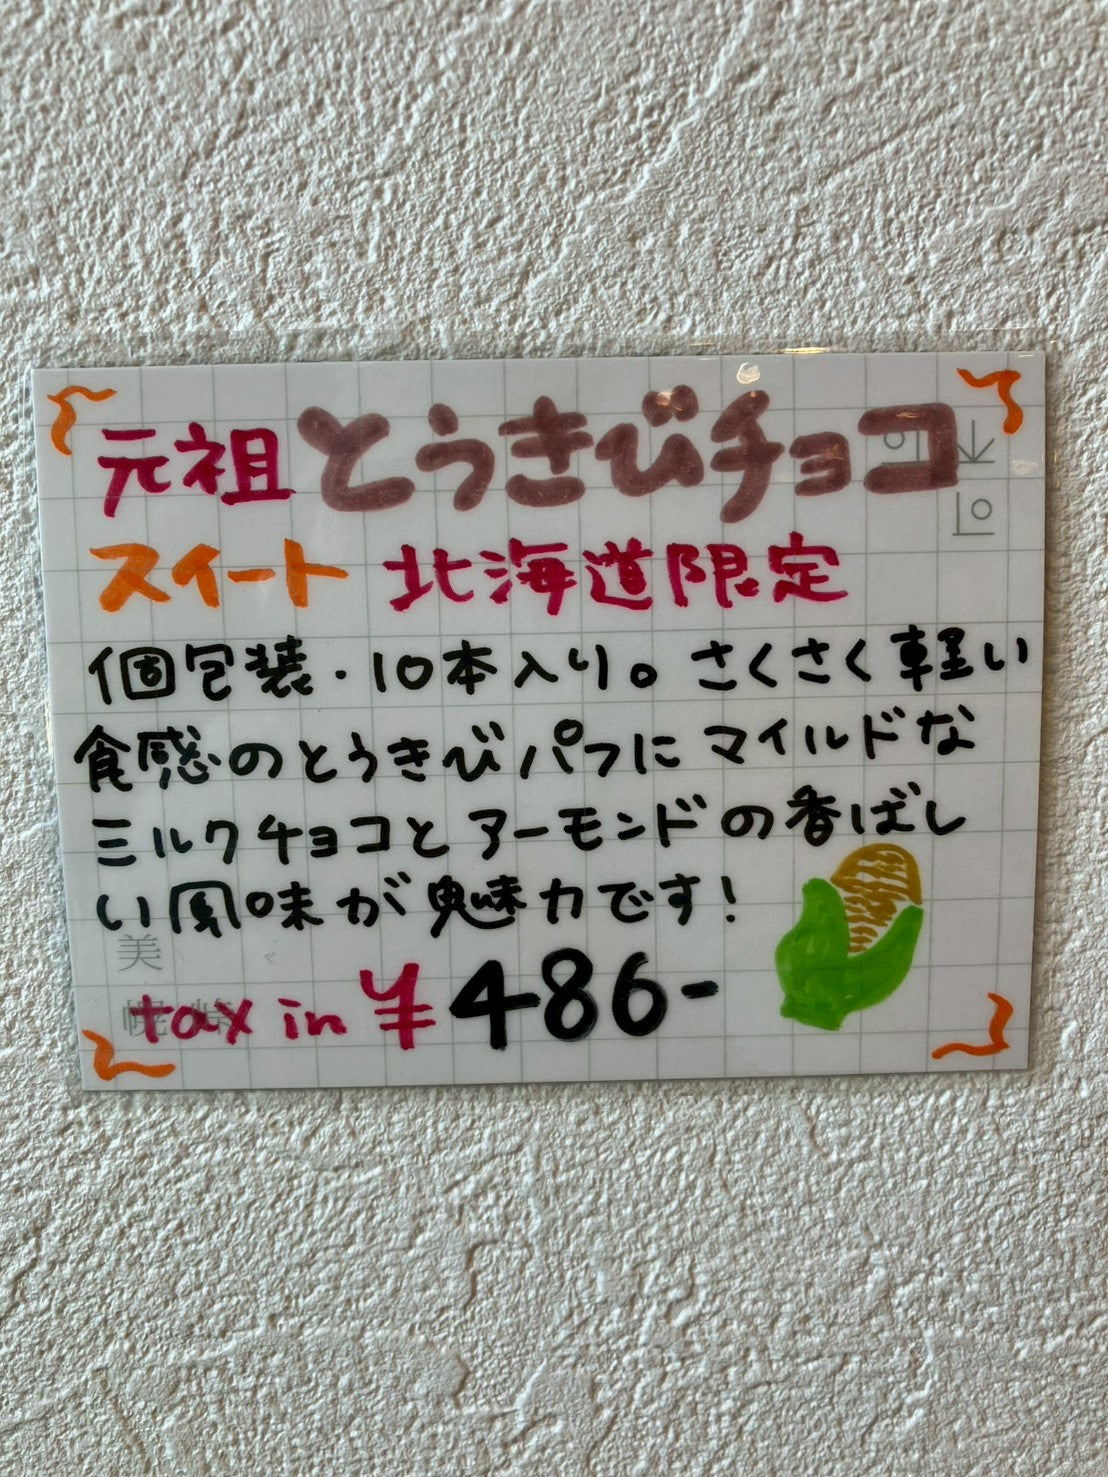 元祖 とうきびチョコ
スイート 北海道限定
個包装・10本入り。さくさく軽い
食感のとうきびパフにマイルドな
ミルクチョコとアーモンドの香ばし
い風味が魅力です!
美
tax in ¥486-